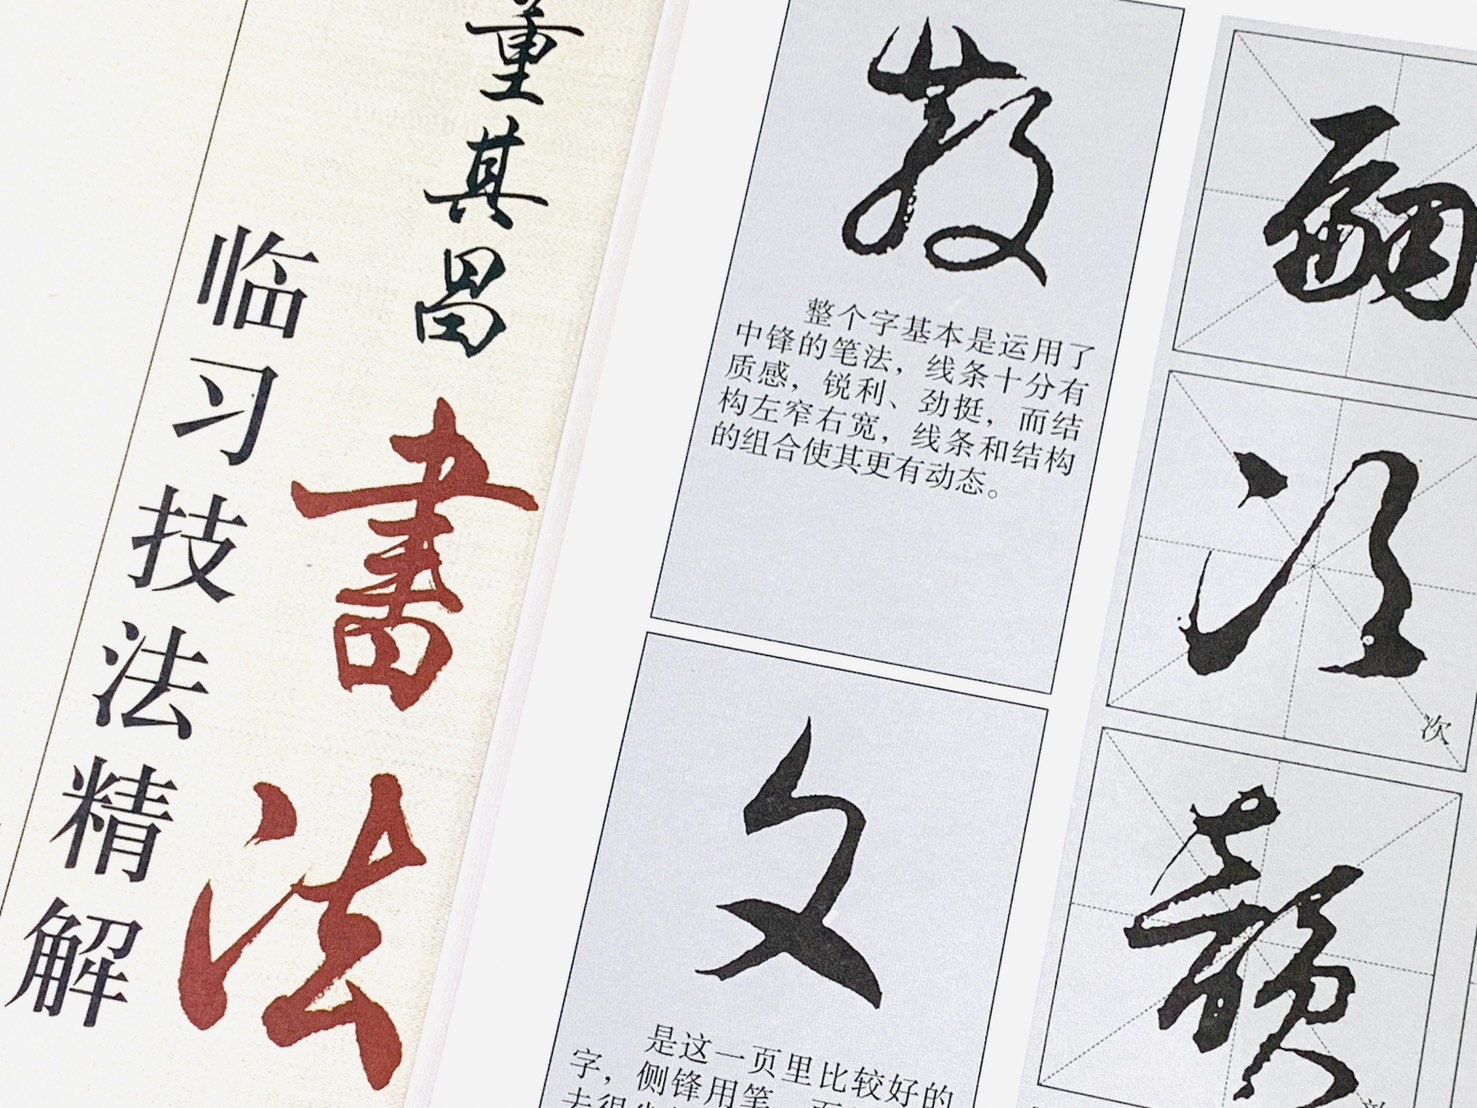 董其昌
書法
临习技法精解
散
整个字基本是运用了
中锋的笔法，线条十分有
质感，锐利、劲挺，而结
构左窄右宽，线条和结构
的组合使其更有动态。
文
是这一页里比较好的
字，侧锋用笔，
翩
次
次